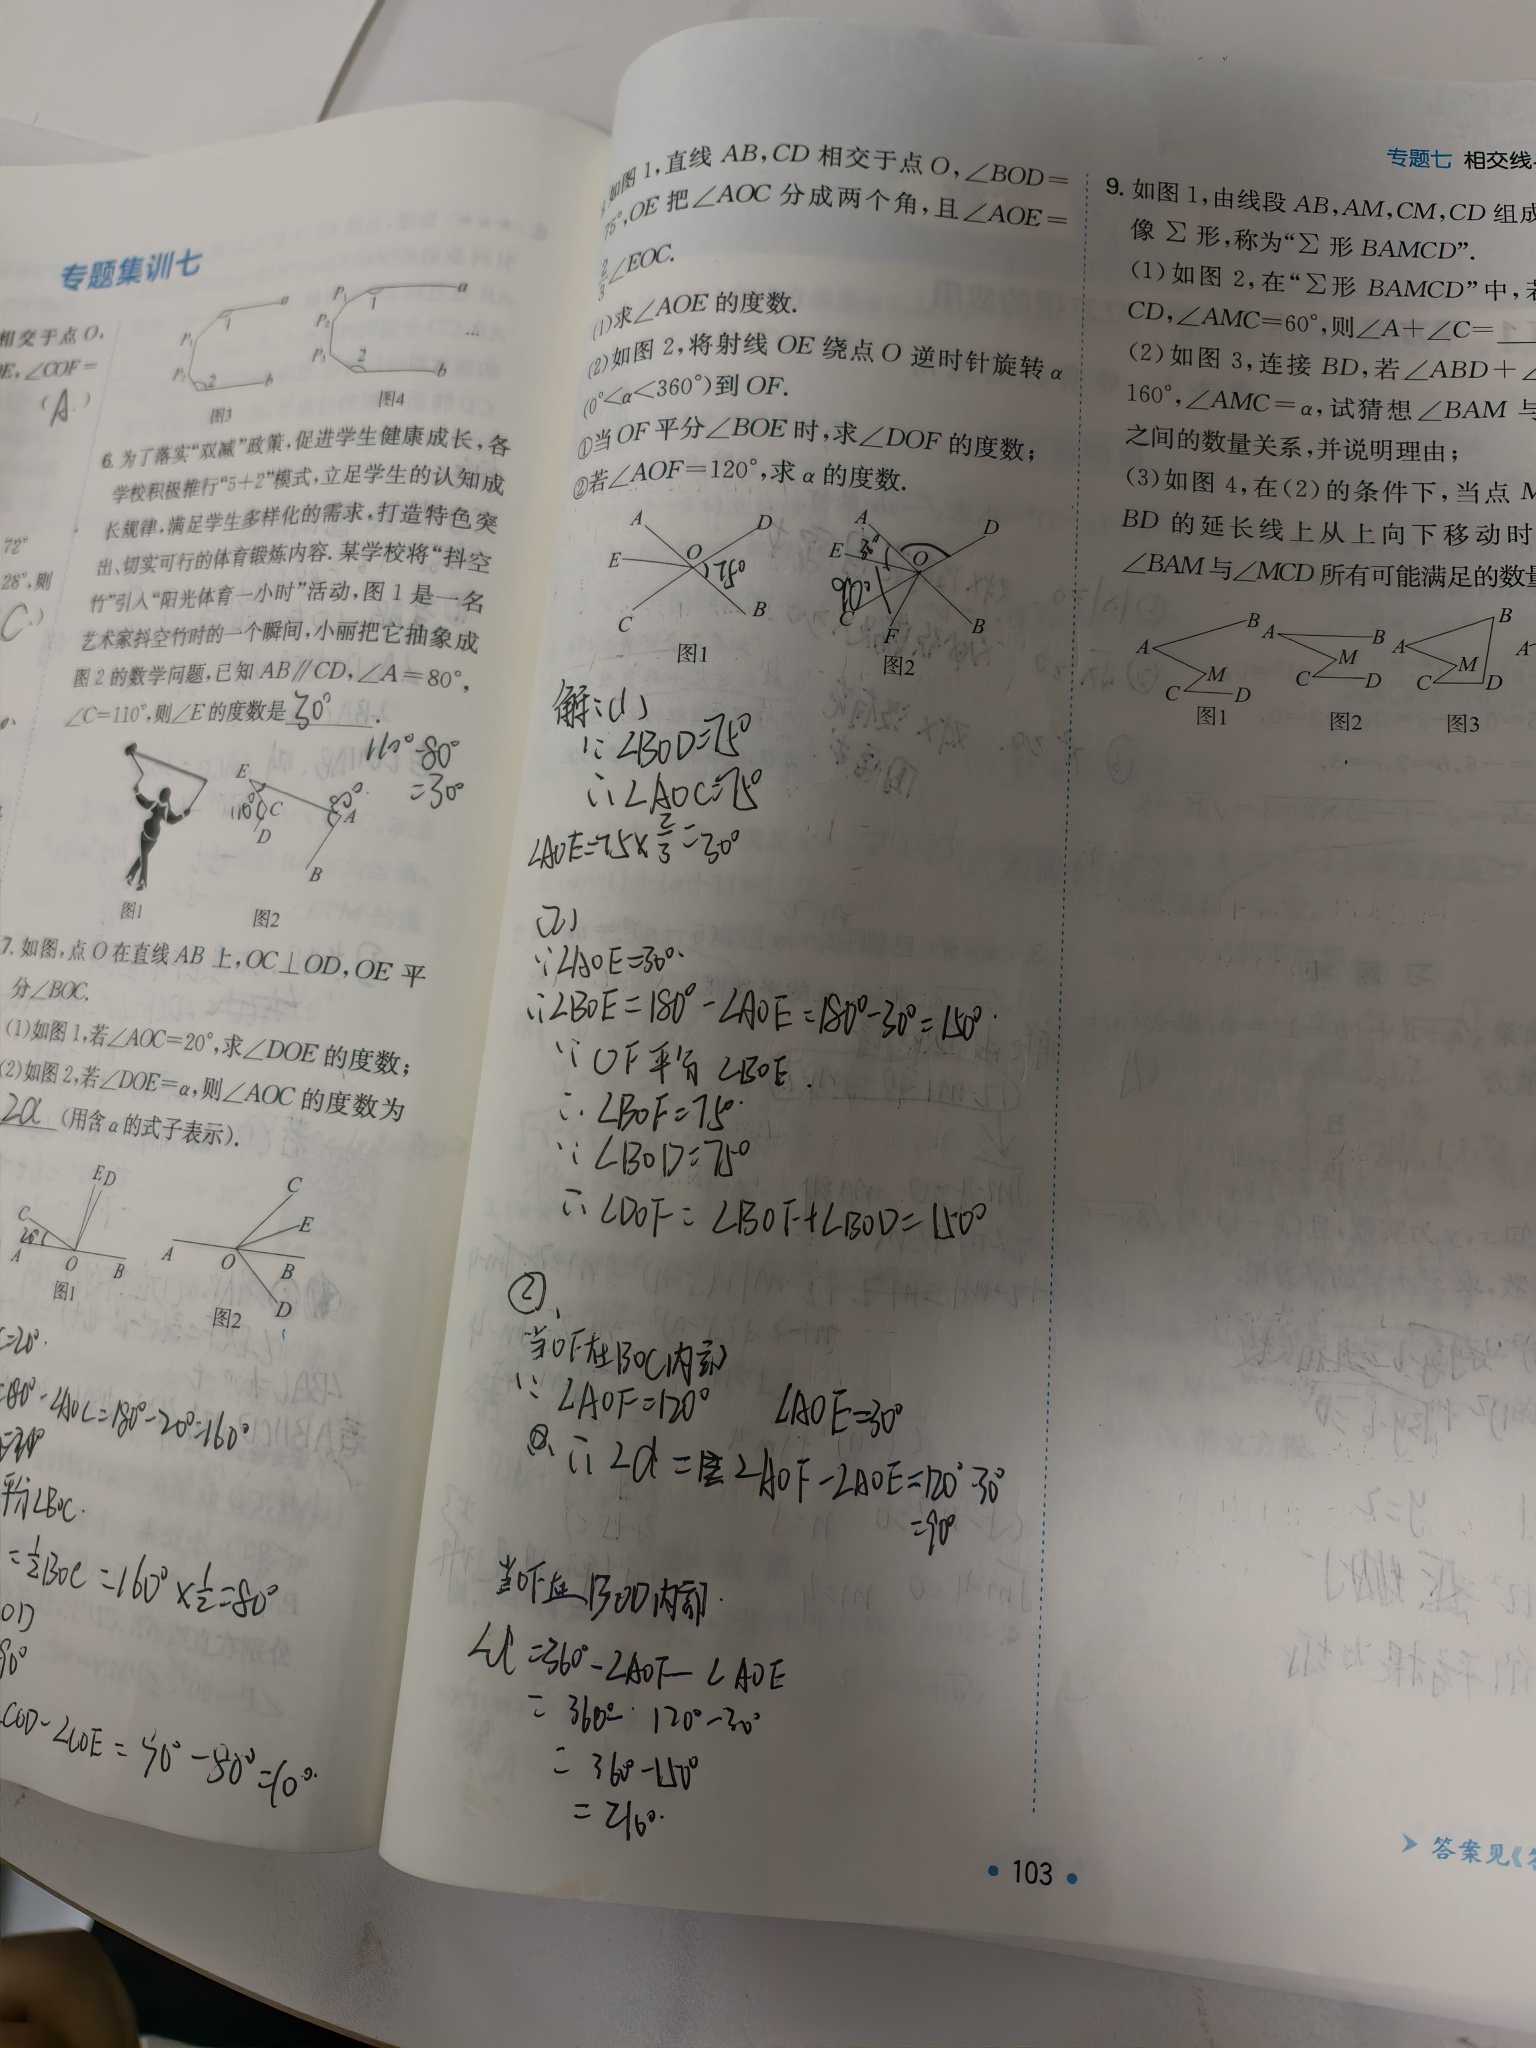 专题集训七
相交于点O,
E,∠COF=
(A)
72°
28°,则
C
P₁ 1 a
P₁ 1 a
P₂
P₂ 2 b
P₃ 2 b
...
图3
图4
6.为了落实“双减”政策,促进学生健康成长,各
学校积极推行“5+2”模式,立足学生的认知成
长规律,满足学生多样化的需求,打造特色突
出、切实可行的体育锻炼内容.某学校将“抖空
竹”引入“阳光体育一小时”活动,图1是一名
艺术家抖空竹时的一个瞬间,小丽把它抽象成
图2的数学问题,已知AB∥CD,∠A=80°,
∠C=110°,则∠E的度数是 30° .
110°-80°
=30°
E C D A B
110° 80°
图1
图2
7.如图,点O在直线AB上,OC⊥OD,OE平
分∠BOC.
(1)如图1,若∠AOC=20°,求∠DOE的度数;
(2)如图2,若∠DOE=α,则∠AOC的度数为
2α (用含α的式子表示).
E D C A O B
20°
图1
C E A O B D
图2
=20°.
=180°-∠AOC=180°-20°=160°
平分∠BOC.
=½BOC=160°×½=80°
OD
90°
COD-∠COE=90°-80°=10°.
如图1,直线AB,CD相交于点O,∠BOD=
75°,OE把∠AOC分成两个角,且∠AOE=
2/3∠EOC.
(1)求∠AOE的度数.
(2)如图2,将射线OE绕点O逆时针旋转α
(0°<α<360°)到OF.
①当OF平分∠BOE时,求∠DOF的度数;
②若∠AOF=120°,求α的度数.
A D E O C B
75°
图1
A D E O C F B
30°
90°
图2
解:(1)
∵∠BOD=75°
∴∠AOC=75°
∠AOE=75×2/3=30°
(2)
∵∠AOE=30°.
∴∠BOE=180°-∠AOE=180°-30°=150°.
∵OF平分∠BOE.
∴∠BOF=75°.
∵∠BOD=75°
∴∠DOF=∠BOF+∠BOD=150°
②、
当OF在BOC内部
∵∠AOF=120° ∠AOE=30°
∴∠α=∠AOF-∠AOE=120°-30°
=90°
当OF在BOD内部.
∠α=360°-∠AOF-∠AOE
=360°-120°-30°
=360°-150°
=210°.
• 103 •
专题七 相交线
9.如图1,由线段AB,AM,CM,CD组成
像∑形,称为“∑形BAMCD”.
(1)如图2,在“∑形BAMCD”中,若
CD,∠AMC=60°,则∠A+∠C=
(2)如图3,连接BD,若∠ABD+∠
160°,∠AMC=α,试猜想∠BAM与
之间的数量关系,并说明理由;
(3)如图4,在(2)的条件下,当点M
BD的延长线上从上向下移动时
∠BAM与∠MCD所有可能满足的数量
A B M C D
图1
A B M C D
图2
A B M C D
图3
A
答案见《